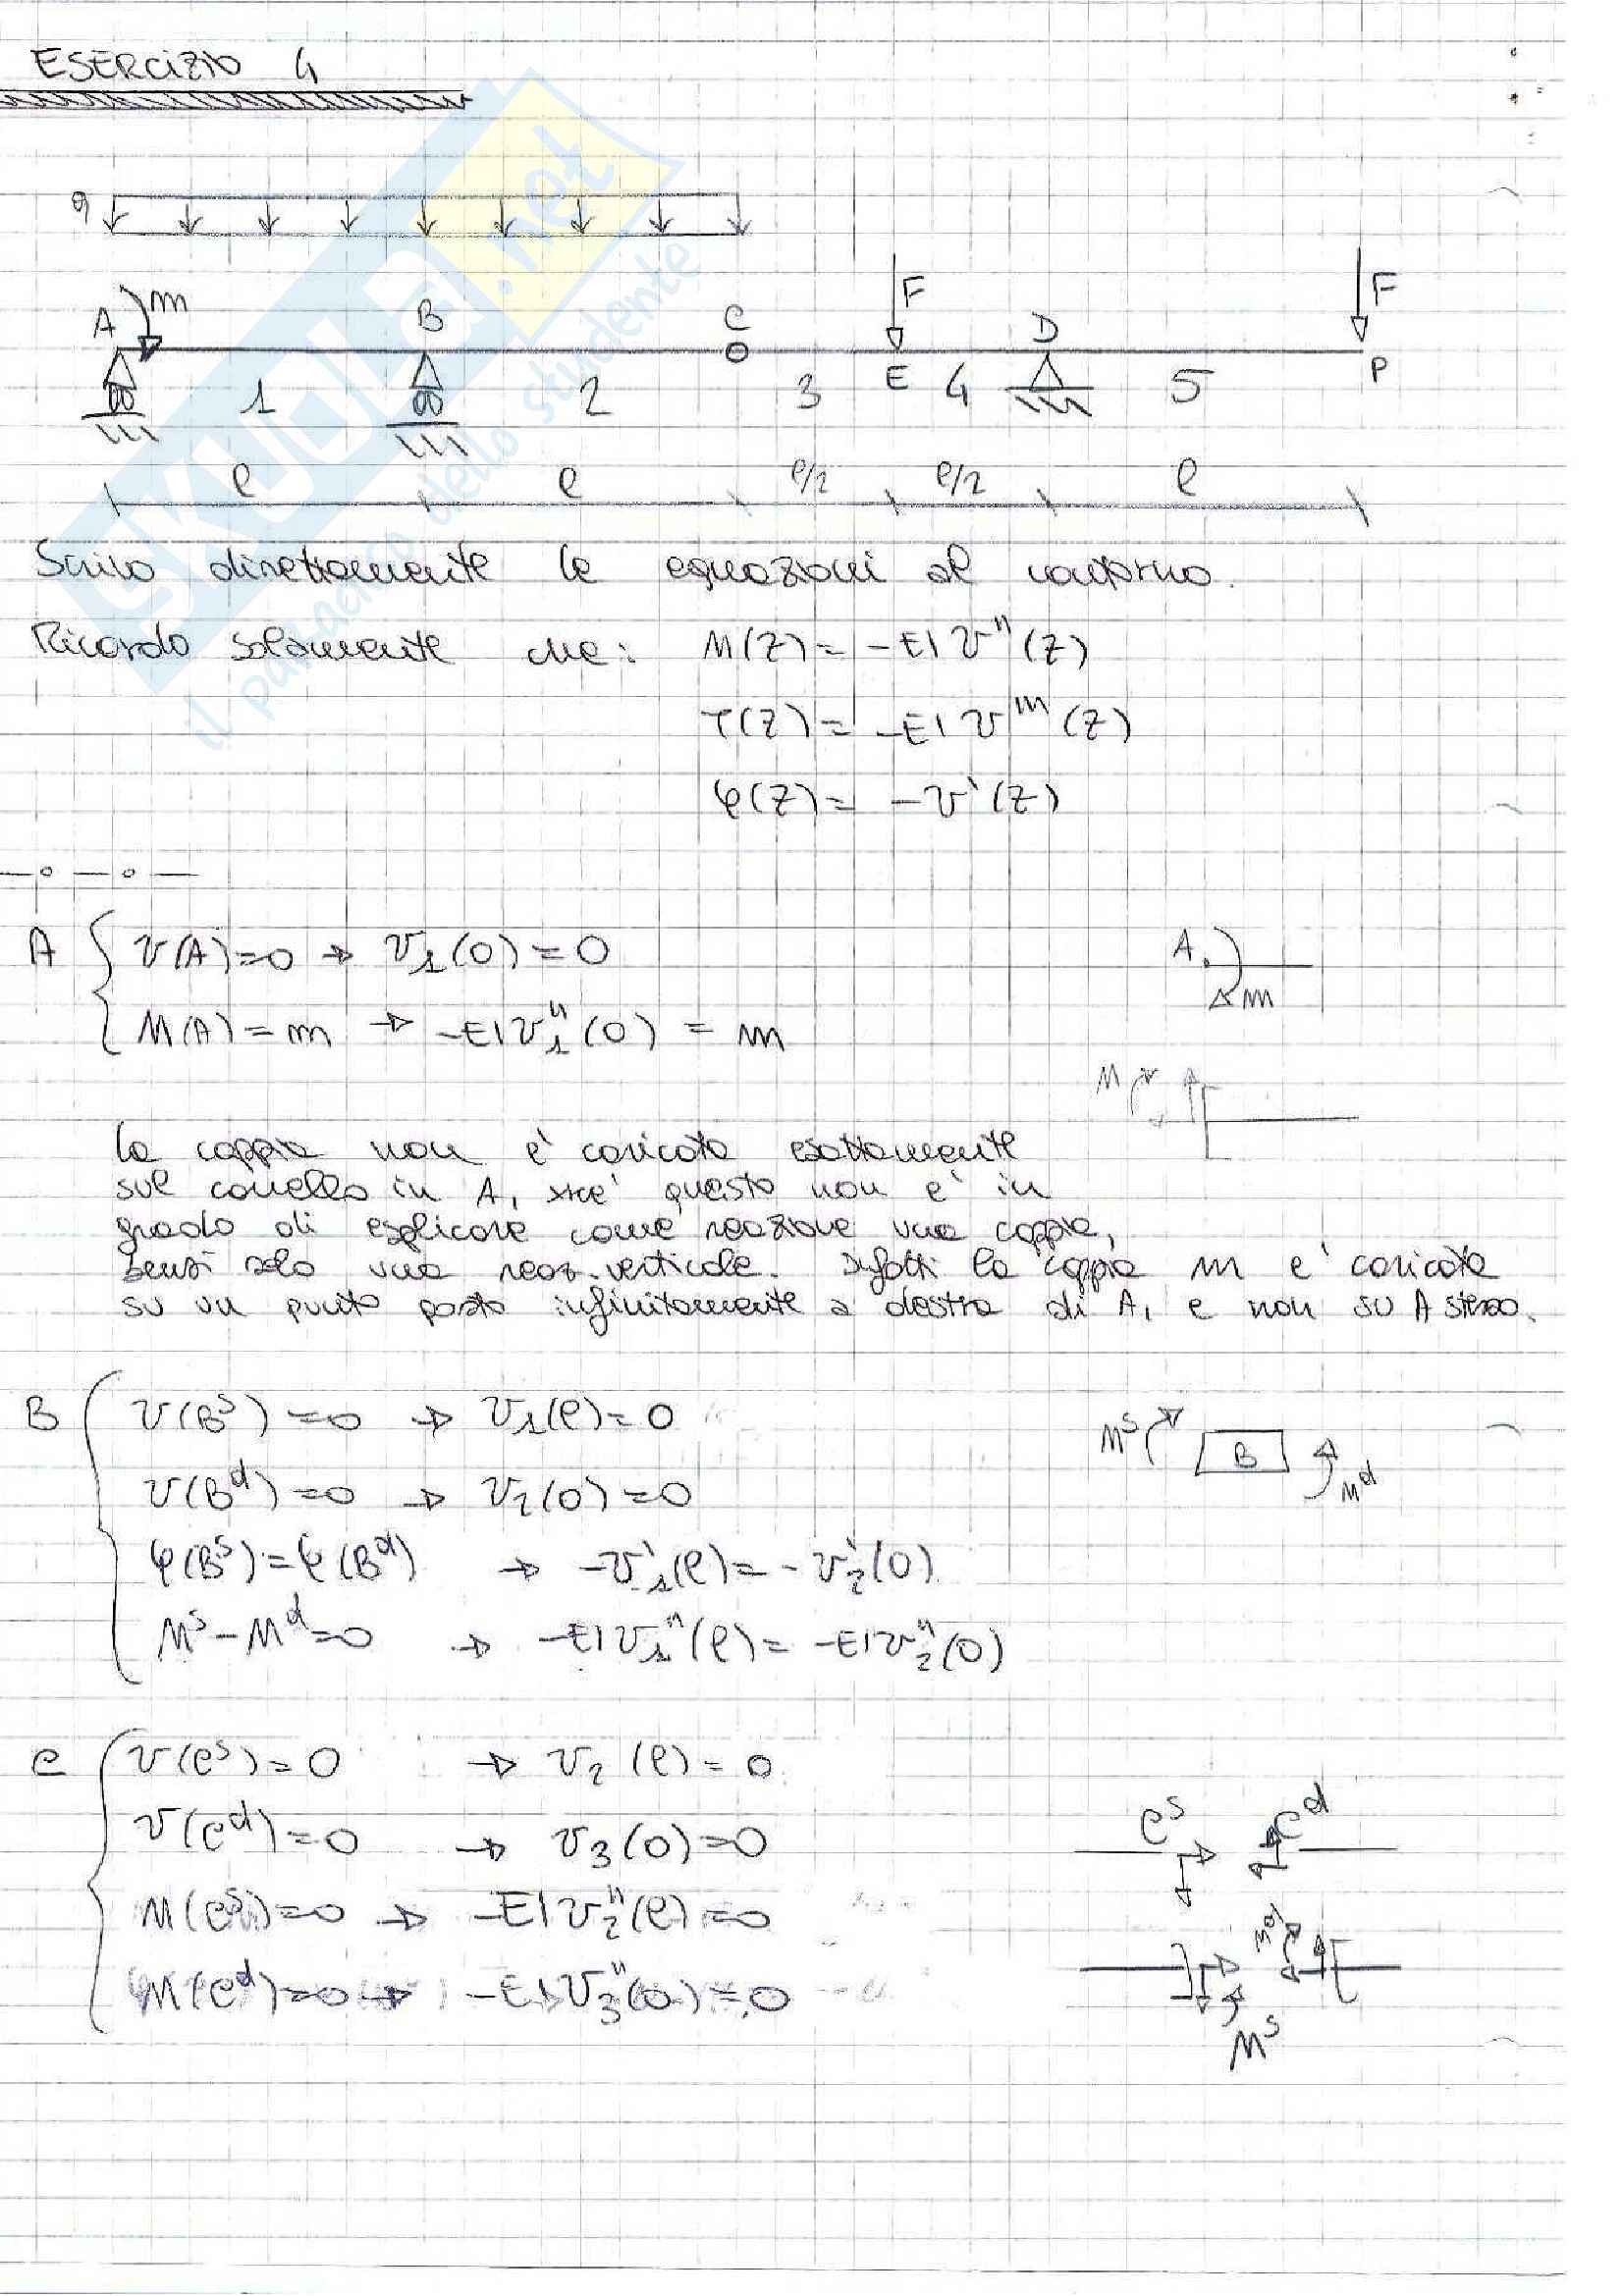 ESERCIZIO 4
q
A m B C F D F
1 2 3 E 4 5 P
ℓ ℓ ℓ/2 ℓ/2 ℓ
Scrivo direttamente le equazioni al contorno.
Ricordo solamente che: M(z) = -EI v''(z)
T(z) = -EI v'''(z)
φ(z) = -v'(z)
A { v(A)=0 → v₁(0)=0
A m
M(A)=m → -EI v₁''(0) = m
M
la coppia non è caricata esattamente
sul carrello in A, xké questo non è in
grado di esplicare come reazione una coppia,
bensì solo una reaz. verticale. Infatti la coppia m è caricata
su un punto posto infinitamente a destra di A, e non su A stesso.
B { v(Bˢ)=0 → v₁(ℓ)=0
Mˢ B Mᵈ
v(Bᵈ)=0 → v₂(0)=0
φ(Bˢ)=φ(Bᵈ) → -v₁'(ℓ)=-v₂'(0)
Mˢ-Mᵈ=0 → -EI v₁''(ℓ)=-EI v₂''(0)
C { v(Cˢ)=0 → v₂(ℓ)=0
Cˢ Cᵈ
v(Cᵈ)=0 → v₃(0)=0
M(Cˢ)=0 → -EI v₂''(ℓ)=0
M(Cᵈ)=0 → -EI v₃''(0)=0
Mˢ
SKUOLA.net
il paradiso dello studente